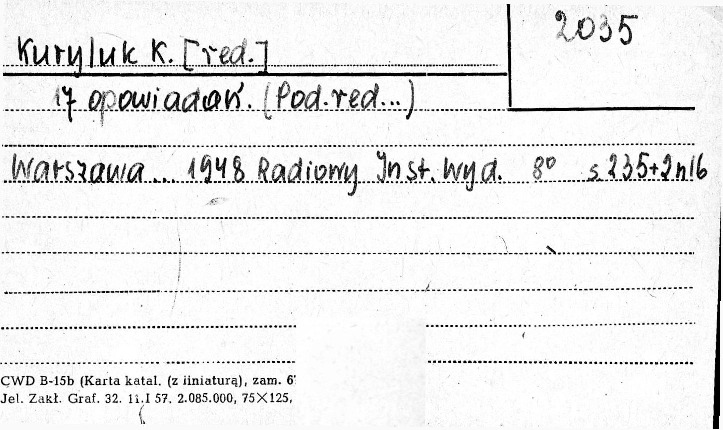 2035
Kuryluk K. [red.]
17 opowiadań. (Pod.red...)
Warszawa... 1948 Radiowy Inst. Wyd. 8° s 235+2nlb
CWD B-15b (Karta katal. (z iiniaturą), zam. 6
Jel. Zakł. Graf. 32. 11.I 57. 2.085.000, 75×125,